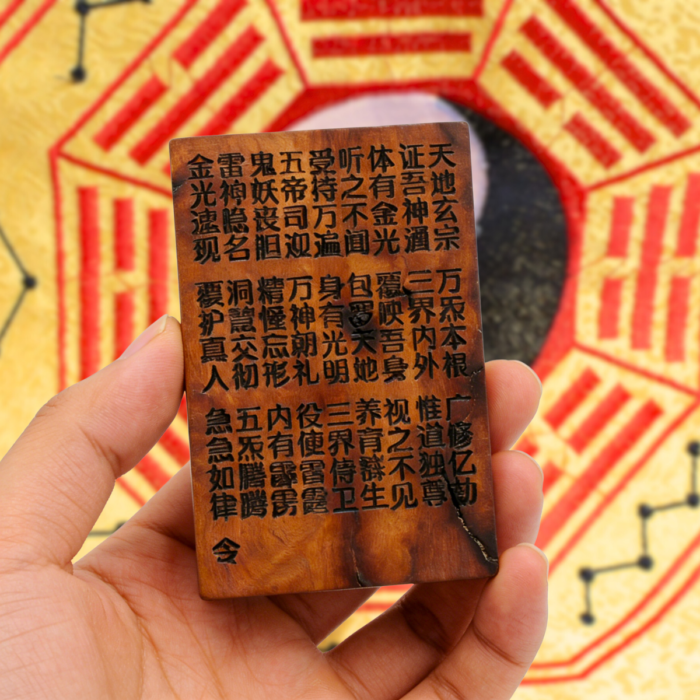 天地玄宗 万炁本根 广修亿劫
证吾神通 三界内外 惟道独尊
体有金光 覆映吾身 视之不见
听之不闻 包罗天地 养育群生
受持万遍 身有光明 三界侍卫
五帝司迎 万神朝礼 役使雷霆
鬼妖丧胆 精怪忘形 内有霹雳
雷神隐名 洞慧交彻 五炁腾腾
金光速现 覆护真人 急急如律 令